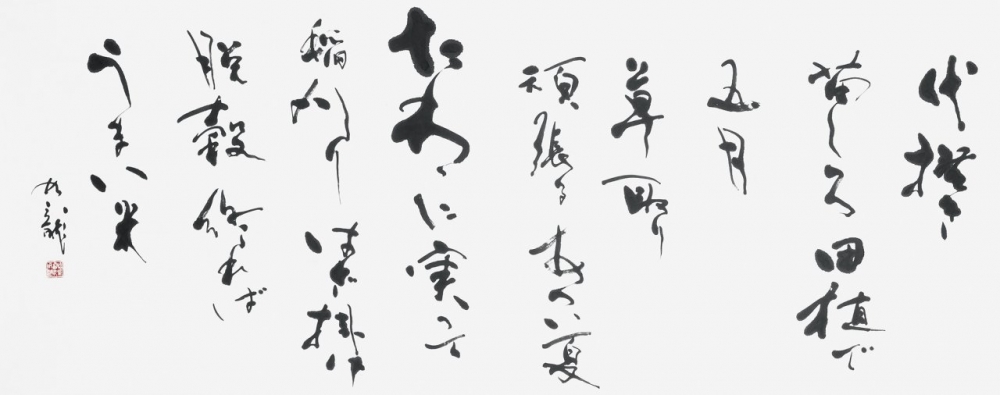 代掻き
苗しろ田植で
五月
草取り
頑張るあつい夏
たわわに実って
稲かりはざ掛け
脱穀終れば
うまい米